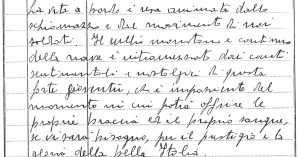 La vita a bordo è resa animata dallo
schiamazzo e dal movimento di noi
soldati. Il rullio monotono e continuo
della nave è intramezzato dai canti
sentimentali e nostalgici di questa
forte gioventù, che è impaziente del
momento in cui potrà offrire le
proprie braccia ed il proprio sangue,
se vi sarà bisogno, per il prestigio e la
gloria della bella Italia.